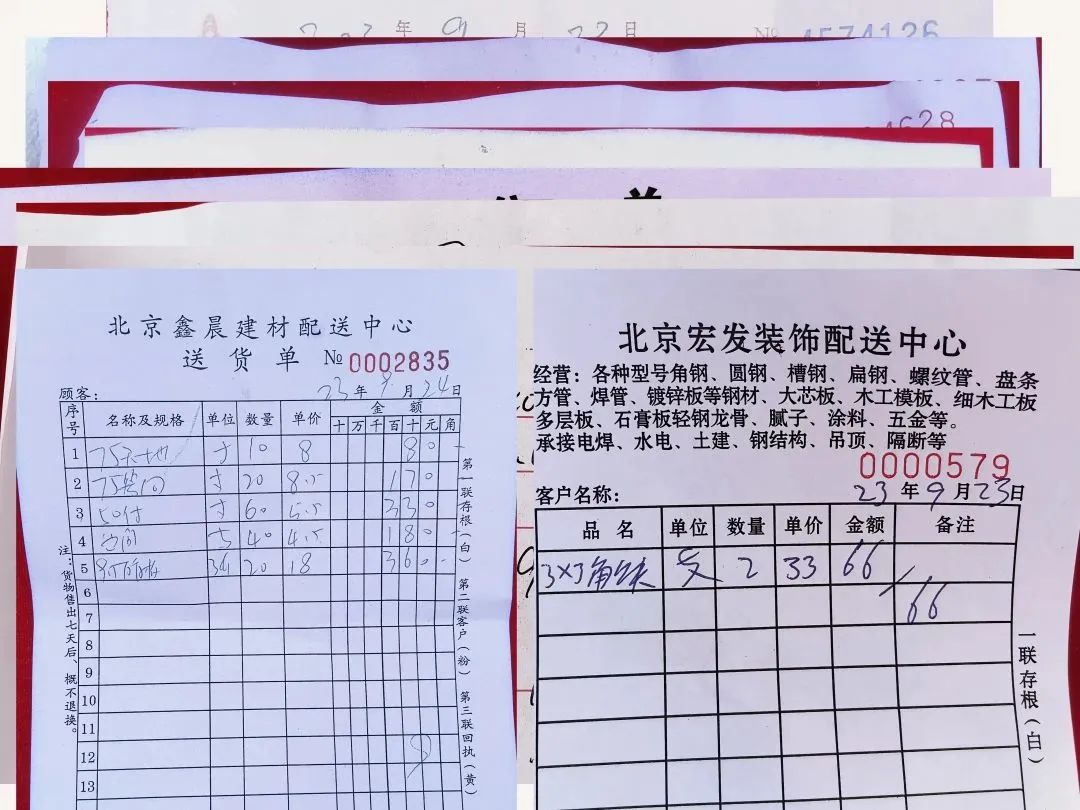 年 9 月 22 日 № 4574126
4628
北京鑫晨建材配送中心
送货单 № 0002835
23 年 9 月 24 日
顾客：
序号 名称及规格 单位 数量 单价 金额
十 万 千 百 十 元 角
1 75天地 寸 10 8 80
2 寸 20 8.5 170
3 寸 60 5.5 330
4 40 4.5 180
5 20 18 360
6
7
8
9
10
11
12
13
注：货物售出七天后、概不退换。
第一联存根（白） 第二联客户（粉） 第三联回执（黄）
北京宏发装饰配送中心
经营：各种型号角钢、圆钢、槽钢、扁钢、螺纹管、盘条
方管、焊管、镀锌板等钢材、大芯板、木工模板、细木工板
多层板、石膏板轻钢龙骨、腻子、涂料、五金等。
承接电焊、水电、土建、钢结构、吊顶、隔断等
0000579
客户名称： 23 年 9 月 23 日
品名 单位 数量 单价 金额 备注
3×3角铁 支 2 33 66
66
一联存根（白）